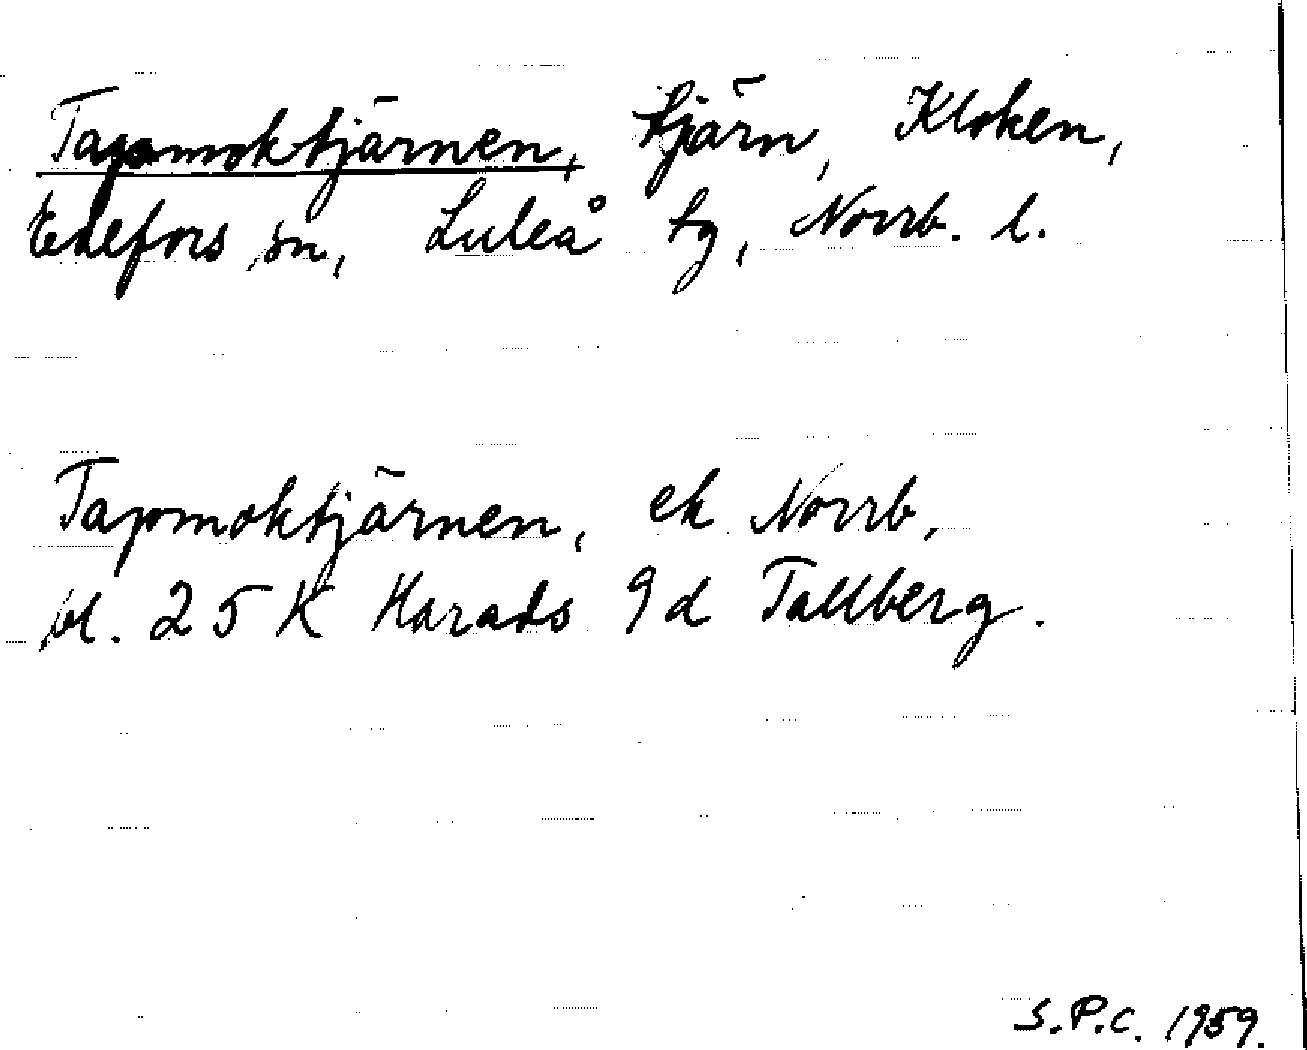 Tapmoktjärnen, tjärn, Kloken,
Edefors sn, Luleå tg, Norrb. l.
Tapmoktjärnen, ek Norrb,
bl. 25 K Harads 9d Tallberg.
S.P.C. 1959.